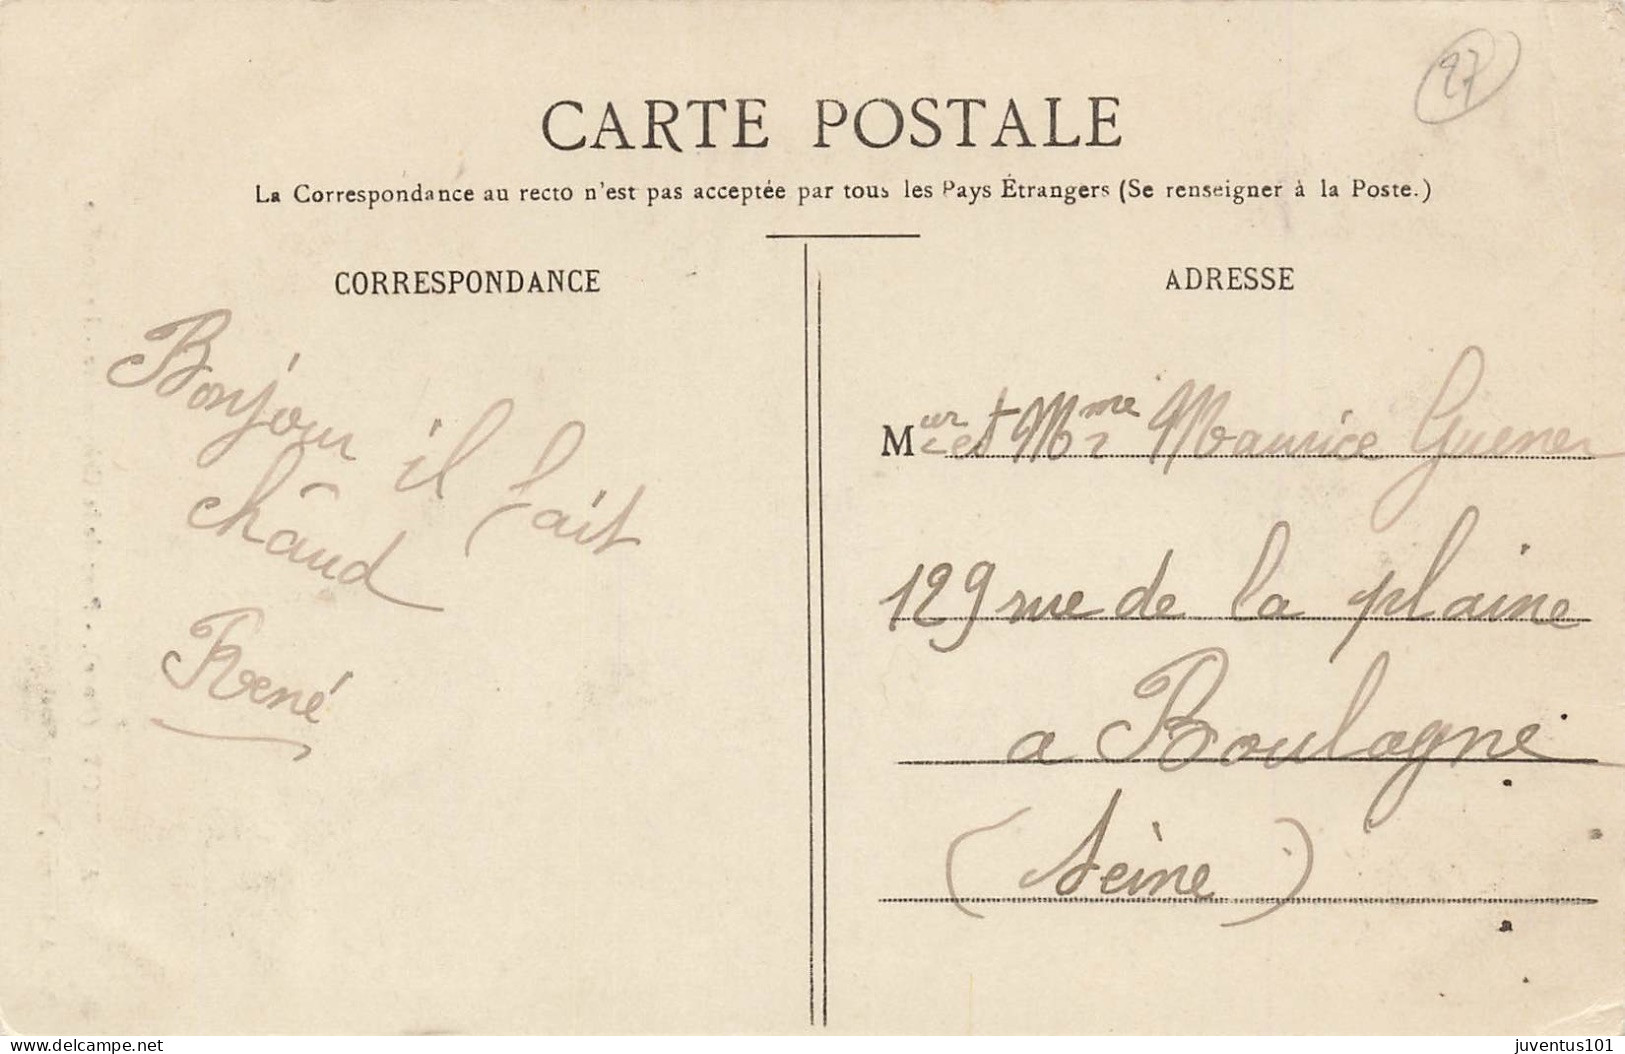 27
CARTE POSTALE
La Correspondance au recto n'est pas acceptée par tous les Pays Étrangers (Se renseigner à la Poste.)
CORRESPONDANCE
Bonjour il fait
châud
René
ADRESSE
Meur et Mme Maurice Guener
129 rue de la plaine
a Boulogne
(Seine)
www.delcampe.net
juventus101